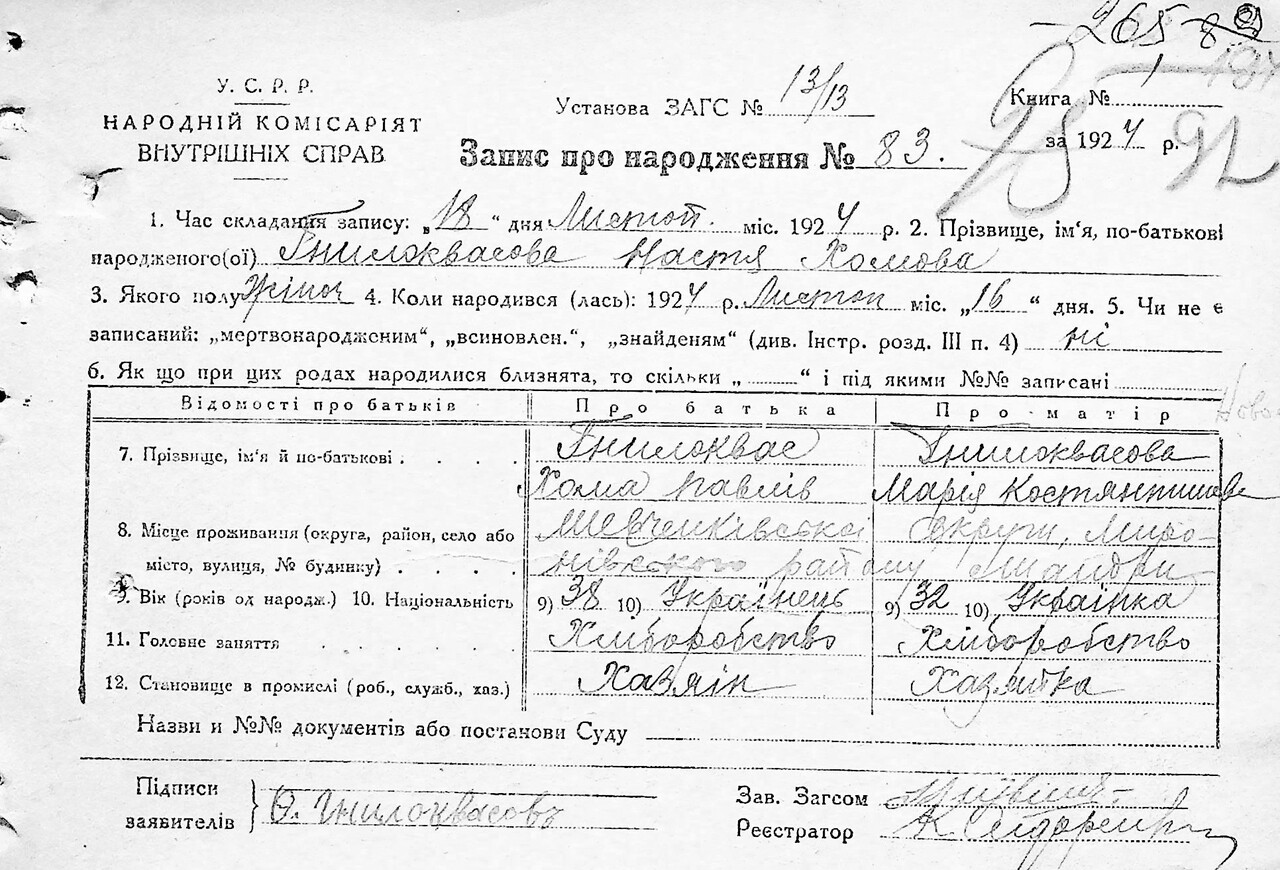 265 8
У. С. Р. Р.
НАРОДНІЙ КОМІСАРІЯТ
ВНУТРІШНІХ СПРАВ
Установа ЗАГС № 13/13
Книга № 1
за 1924 р.
28 92
Запис про народження № 83.
1. Час складання запису: „18“ дня Листоп. міс. 1924 р. 2. Прізвище, ім'я, по-батькові
народженого(ої) Гнилоквасова Настя Хомова
3. Якого полу Жіноч 4. Коли народився (лась): 1924 р. Листоп міс. „16“ дня. 5. Чи не є
записаний: „мертвонародженим“, „всиновлен.“, „знайденям“ (див. Інстр. розд. III п. 4) ні
6. Як що при цих родах народилися близнята, то скільки „ “ і під якими №№ записані
Відомості про батьків Про батька Про матір
7. Прізвище, ім'я й по-батькові . . . . Гнилоквас Гнилоквасова
Хома Павлів Марія Костянтинова
8. Місце проживання (округа, район, село або Шевченківської округи, Миро-
місто, вулиця, № будинку) . . . . нівського району
9. Вік (років од народж.) 10. Національність 9) 38 10) Українець 9) 32 10) Українка
11. Головне заняття . . . . . . Хліборобство Хліборобство
12. Становище в промислі (роб., служб., хаз.) Хазяїн Хазяйка
Назви и №№ документів або постанови Суду
Підписи
заявителів
Ѳ. Гнилоквасовъ
Зав. Загсом
Реєстратор К Сидоренко